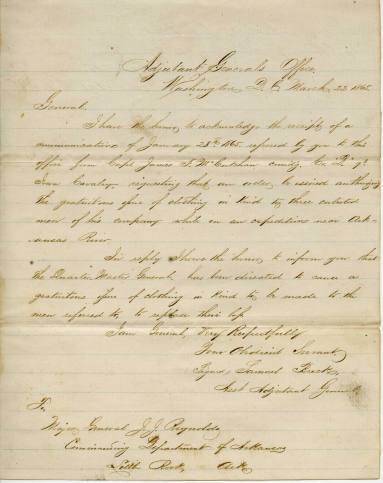 Adjutant Generals Office,
Washington, D.C. March 22 1865.
General.
I have the honor to acknowledge the receipt of a
communication of January 28th 1865. refered by you to this
office from Capt James F. McCutchan comdg Co.
Iowa Cavalry, requesting that an order be issued authorizing
the gratuitous issue of clothing in kind to three enlisted
men of his company while on an expedition near Ark-
ansas River
In reply I have the honor to inform you that
the Quarter Master General has been directed to cause a
gratuitous issue of clothing in kind to be made to the
men refered to, to replace their loss
I am General, Very Respectfully
Your Obedient Servant,
Signed, Samuel Breck,
Asst Adjutant General
To
Major General J. J. Reynolds
Commanding Department of Arkansas
Little Rock, Ark